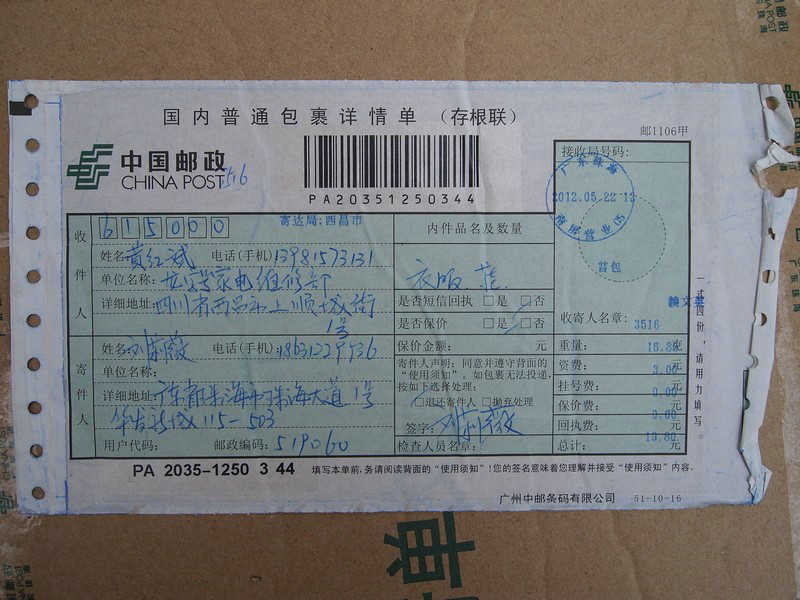 国内普通包裹详情单 (存根联)
邮1106甲
中国邮政
CHINA POST
PA20351250344
接收局号码:
广东珠海
2012.05.22
背包
收件人
615000
寄达局:西昌市
内件品名及数量
姓名:黄红斌 电话(手机)13981573131
单位名称: 家电维修部
衣服
详细地址:四川省西昌市上顺城街
1号
是否短信回执 □是 □否
是否保价 □是 □否
收寄人名章:
3516
寄件人
姓名: 电话(手机):
单位名称:
详细地址:广东省珠海市珠海大道1号
115-503
用户代码: 邮政编码:519060
保价金额: 元
寄件人声明:同意并遵守背面的
“使用须知”。如包裹无法投递,
按如下选择处理:
□退还寄件人 □抛弃处理
签字:
检查人员名章:
重量: 克
资费: 元
挂号费: 元
保价费: 元
回执费: 元
总计: 元
一式四份,请用力填写
PA 2035-1250 3 44
填写本单前,务请阅读背面的“使用须知”!您的签名意味着您理解并接受“使用须知”内容.
广州中邮条码有限公司 51-10-16